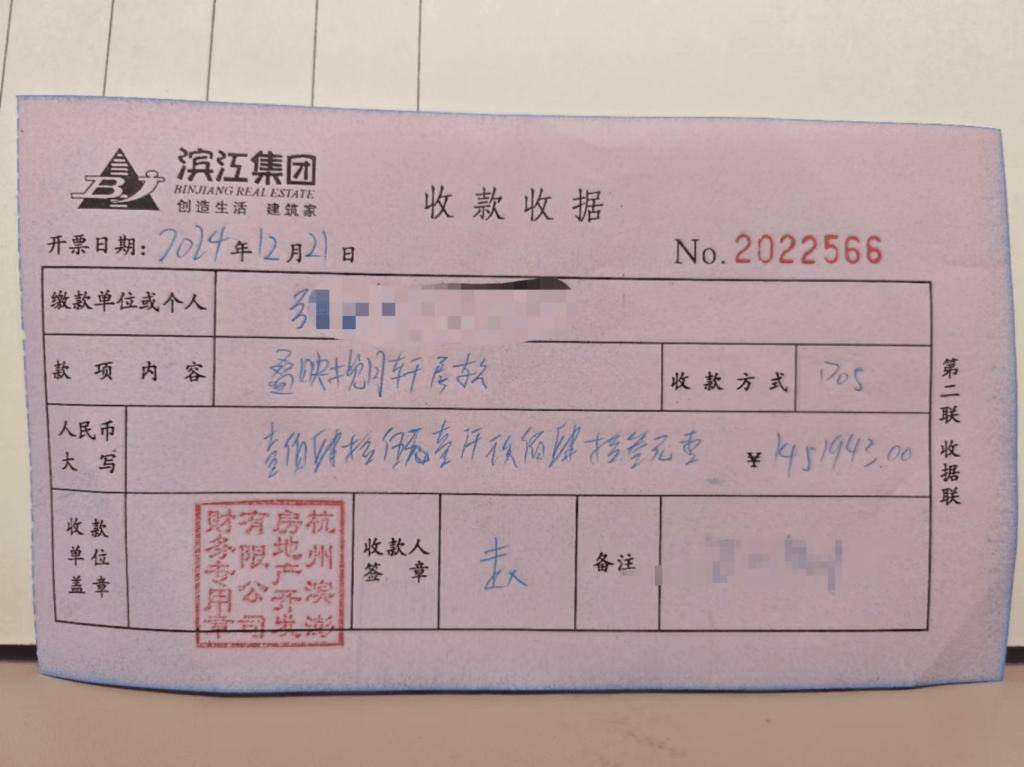 滨江集团
BINJIANG REAL ESTATE
创造生活 建筑家
收款收据
开票日期：2024年12月21日
No.2022566
缴款单位或个人
款项内容 映挽月轩房款 收款方式 POS
人民币大写 壹佰肆拾伍万壹仟玖佰肆拾叁元整 ￥1451943.00
收款单位盖章
杭州滨澎房地产开发有限公司财务专用章
收款人签章
备注
第二联 收据联